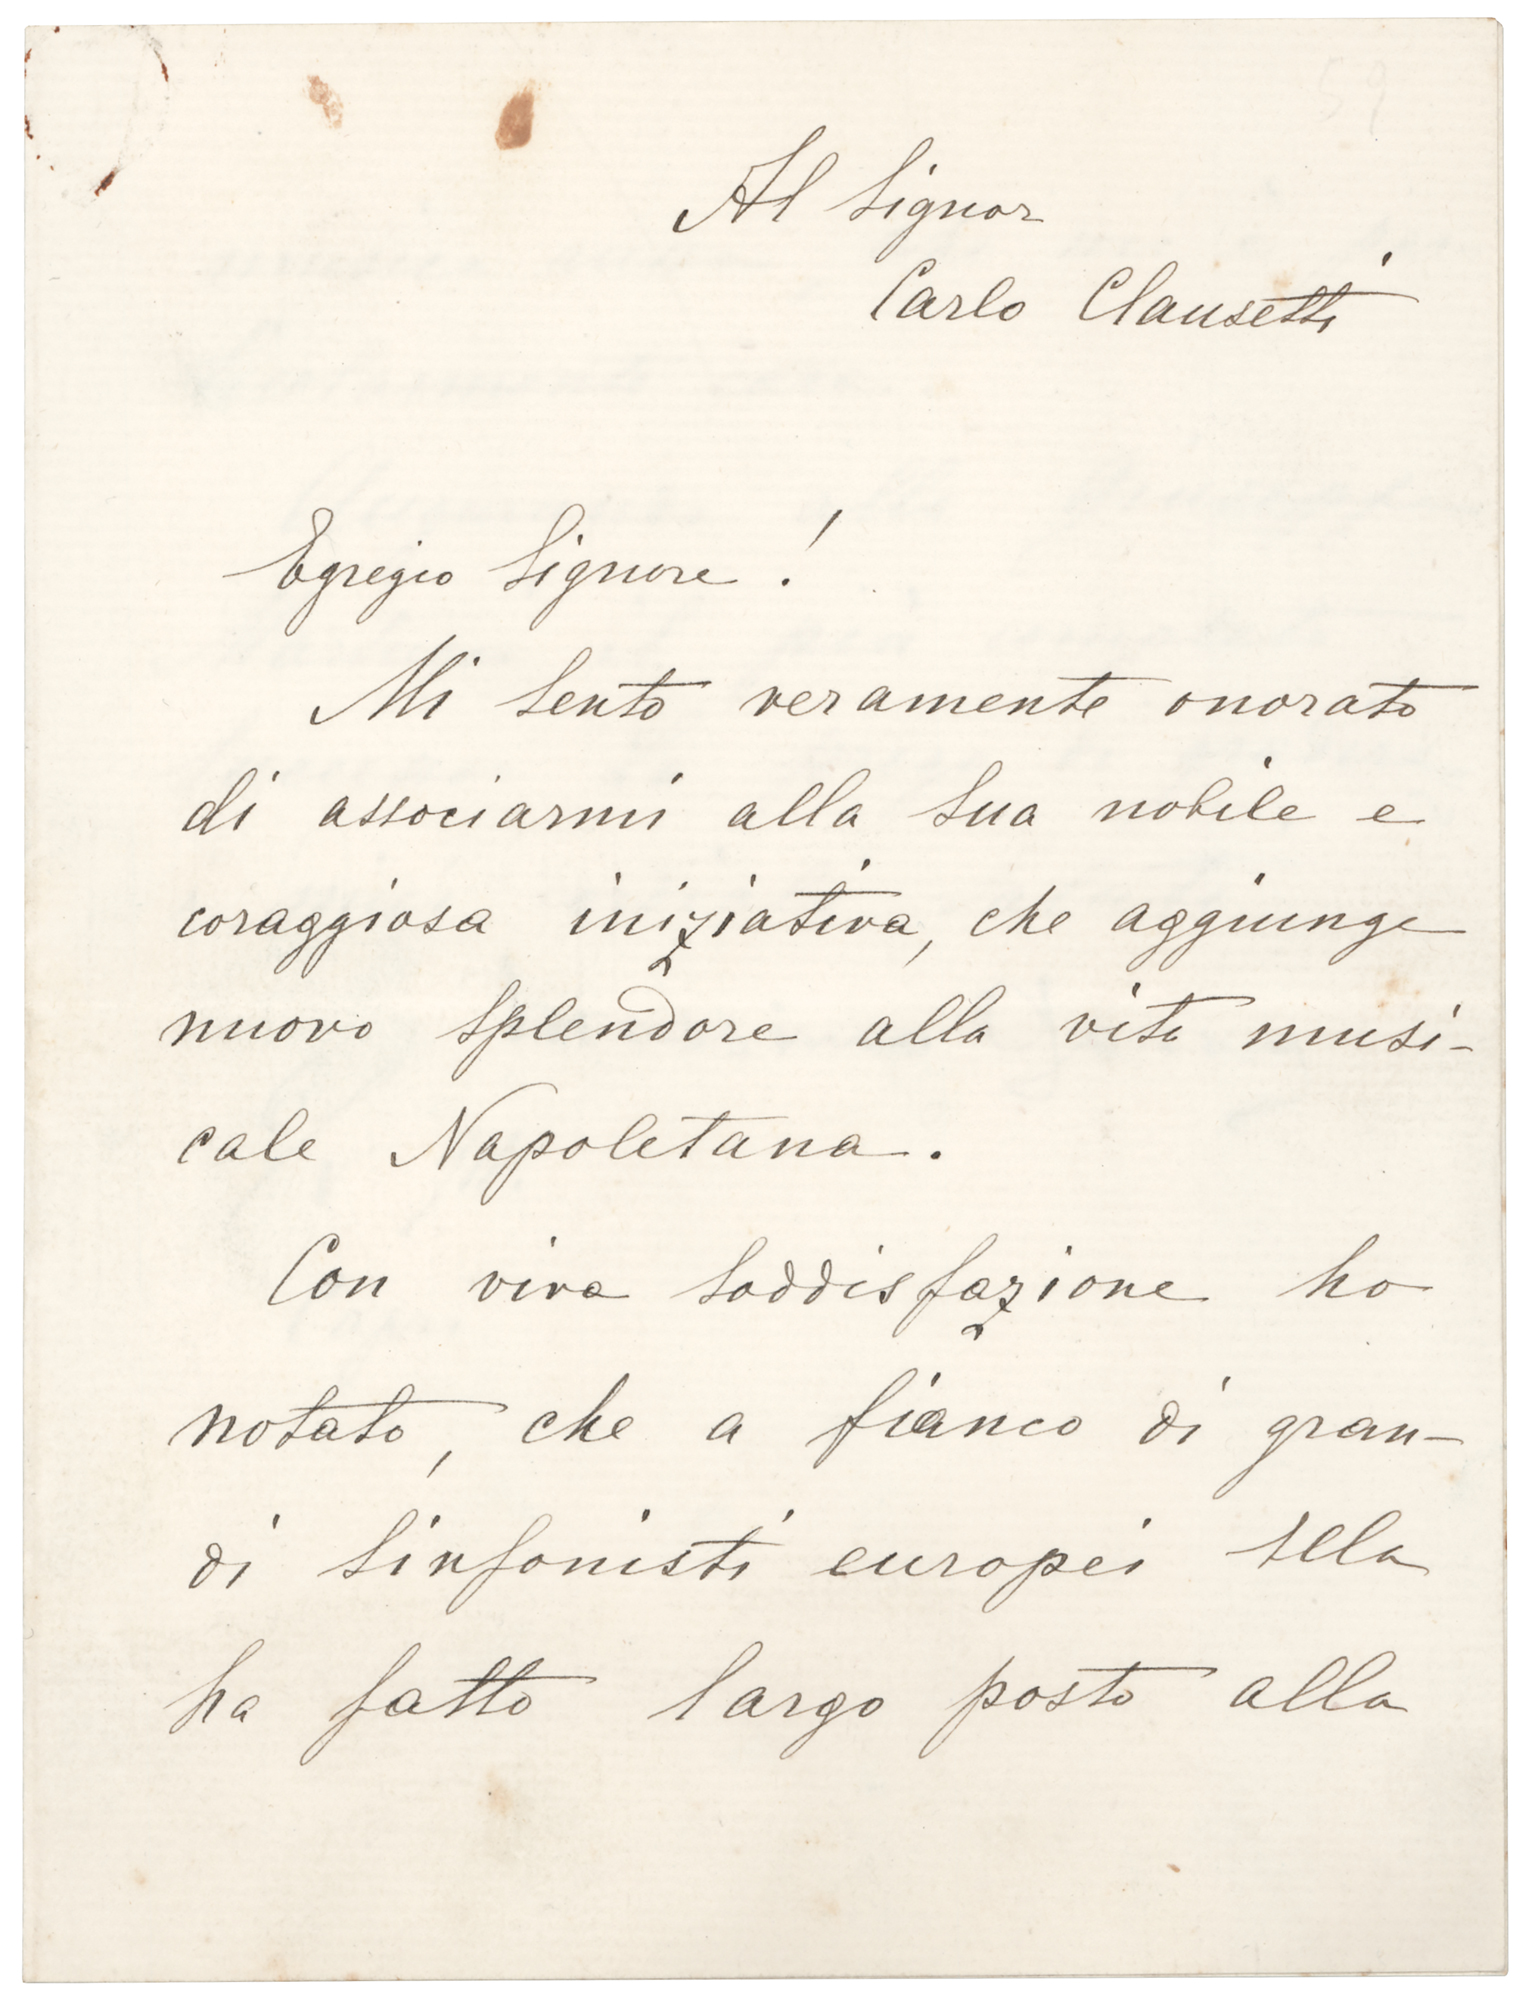 59
Al Signor
Carlo Clausetti
Egregio Signore!
Mi sento veramente onorato
di associarmi alla Sua nobile e
coraggiosa iniziativa, che aggiunge
nuovo splendore alla vita musi-
cale Napoletana.
Con viva soddisfazione ho
notato, che a fianco di gran-
di Sinfonisti europei Ella
ha fatto largo posto alla